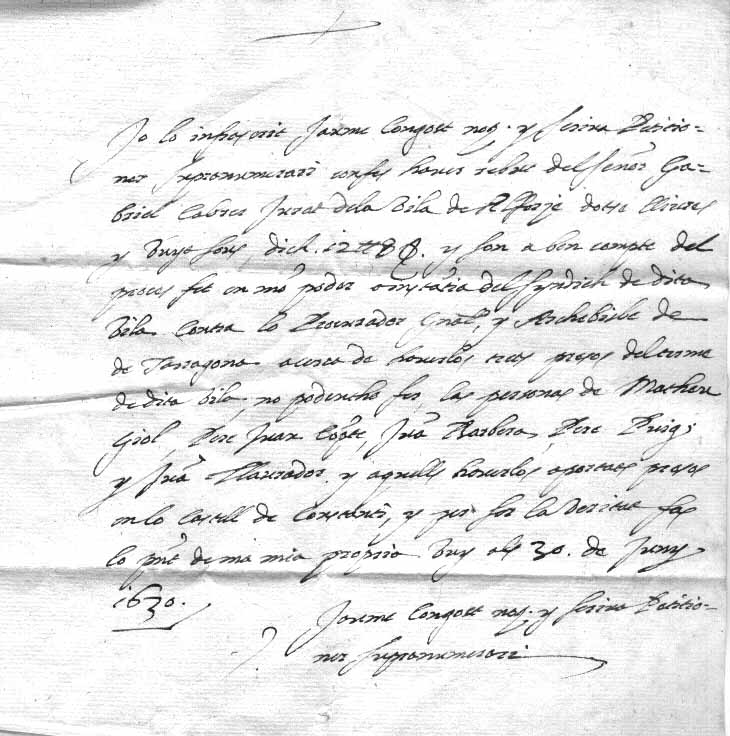 Jo lo infrascrit Jaume Congost not. y scriva Petitio=
ner supranumerari confes haver rebut del señor Ga=
briel Cabrer Jurat dela vila de Alforje dotse lliures
y vuyt sous, dich. 12 ll 8 s. y son a bon compte del
proces fet en mõ poder a instãtia del syndich de dita
vila contra lo Procurador Gñal, y Archebisbe de
de Tarragona acerca de haverlos trets presos del terme
de dita vila, no podentho fer, las personas de Matheu
Giol, Pere Juan, Juã Barbera, Pere Puig;
y Juã Llaurador, y aquells haverlos aportats presos
en lo castell de Constanti, y per ser la veritat fas
lo pñt de ma mia propria vuy als 30. de Juny
1630.
Jaume Congost not. y scriva Petitio=
ner supranumerari